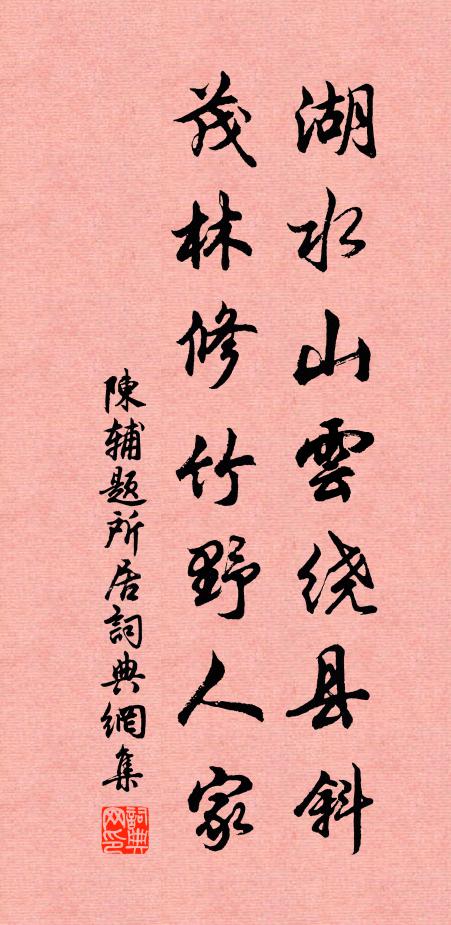 湖水山雲绕县斜
茂林修竹野人家
陳辅题所居詞典網集
詞典网印